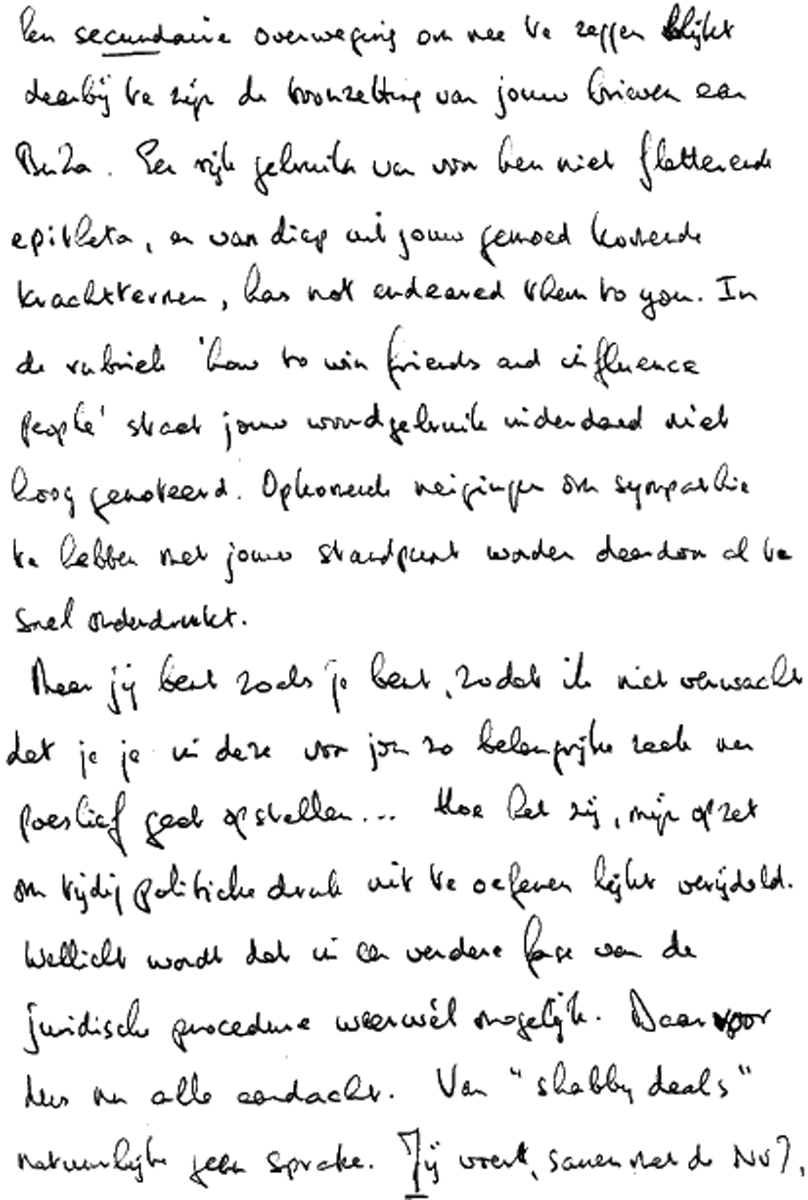 Een secundaire overweging om nee te zeggen blijkt
daarbij te zijn de toonzetting van jouw brieven aan
BuZa. Een rijk gebruik van voor hen niet flatterende
epitheta, en van diep uit jouw gemoed komende
krachttermen, has not endeared them to you. In
de rubriek 'how to win friends and influence
people' staat jouw woordgebruik inderdaad niet
hoog genoteerd. Opkomende neigingen om sympathie
te hebben met jouw standpunt worden daardoor al te
snel onderdrukt.
Maar jij bent zoals je bent, zodat ik niet verwacht
dat je je in deze voor jou zo belangrijke zaak nu
poeslief gaat opstellen... Hoe het zij, mijn opzet
om tijdig politieke druk uit te oefenen lijkt verijdeld.
Wellicht wordt dat in een verdere fase van de
juridische procedure weer wél mogelijk. Daarvoor
dus nu alle aandacht. Van "shabby deals"
natuurlijk geen sprake. Jij voert, samen met de NVJ,